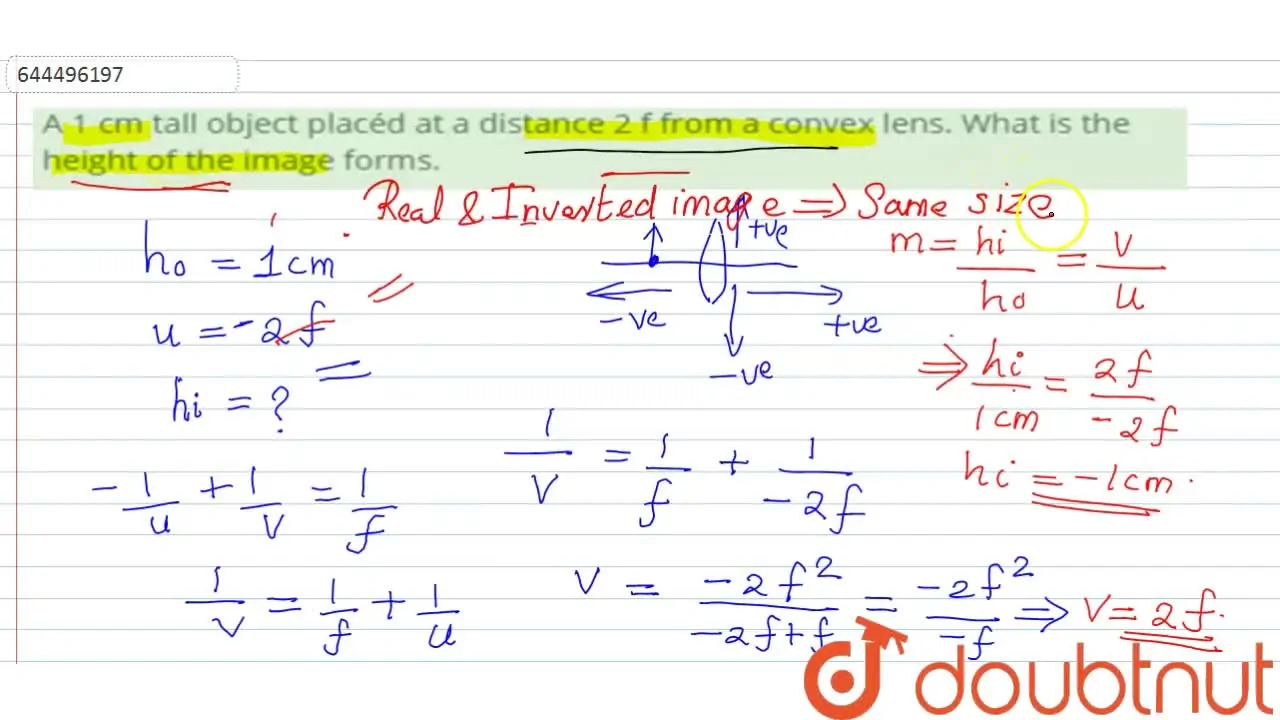 644496197
A 1 cm tall object placéd at a distance 2 f from a convex lens. What is the
height of the image forms.
Real & Inverted image ⇒ Same size
h₀ = 1cm
u = -2f
hi = ?
+ve
-ve
+ve
-ve
m = hi/h₀ = v/u
⇒ hi/1cm = 2f/-2f
hi = -1cm.
-1/u + 1/v = 1/f
1/v = 1/f + 1/u
1/v = 1/f + 1/-2f
v = -2f²/-2f+f = -2f²/-f ⇒ v = 2f.
doubtnut